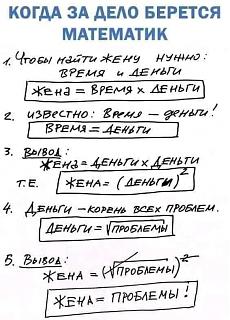 КОГДА ЗА ДЕЛО БЕРЕТСЯ
МАТЕМАТИК
1. Чтобы найти жену нужно:
время и деньги
Жена = время x деньги
2. Известно: время – деньги!
Время = деньги
3. Вывод:
Жена = деньги x деньги
т.е. Жена = (деньги)²
4. Деньги – корень всех проблем.
Деньги = √проблемы
5. Вывод:
Жена = (√проблемы)²
Жена = проблемы!